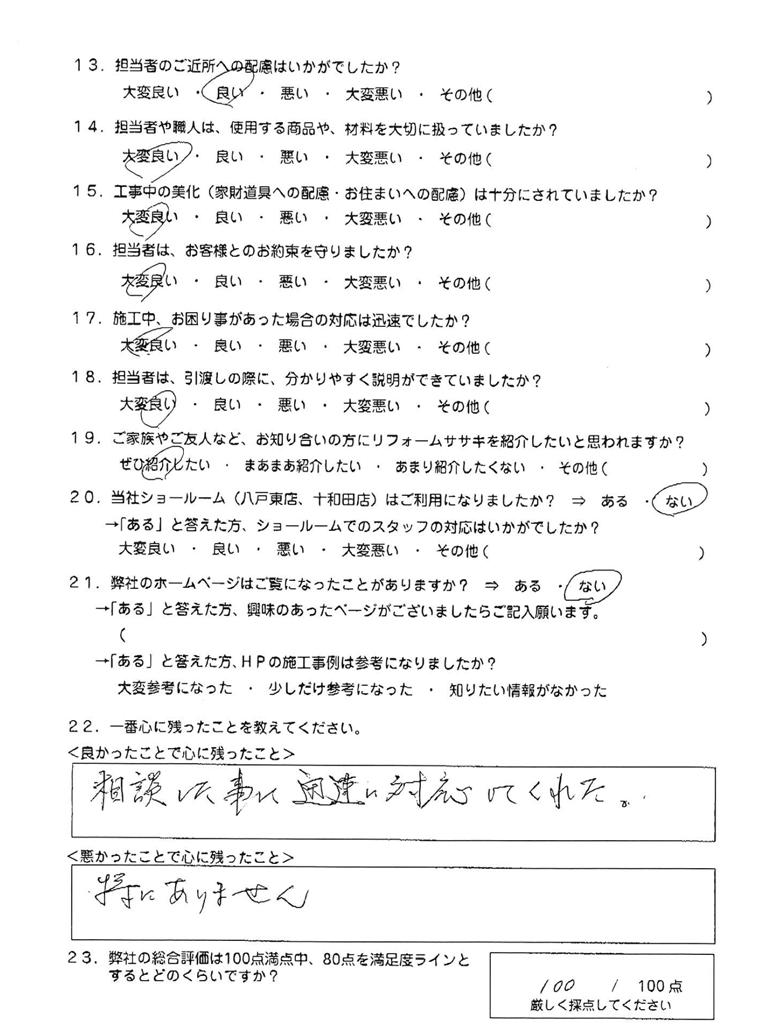 13．担当者のご近所への配慮はいかがでしたか？
大変良い ・ 良い ・ 悪い ・ 大変悪い ・ その他（ ）
14．担当者や職人は、使用する商品や、材料を大切に扱っていましたか？
大変良い ・ 良い ・ 悪い ・ 大変悪い ・ その他（ ）
15．工事中の美化（家財道具への配慮・お住まいへの配慮）は十分にされていましたか？
大変良い ・ 良い ・ 悪い ・ 大変悪い ・ その他（ ）
16．担当者は、お客様とのお約束を守りましたか？
大変良い ・ 良い ・ 悪い ・ 大変悪い ・ その他（ ）
17．施工中、お困り事があった場合の対応は迅速でしたか？
大変良い ・ 良い ・ 悪い ・ 大変悪い ・ その他（ ）
18．担当者は、引渡しの際に、分かりやすく説明ができていましたか？
大変良い ・ 良い ・ 悪い ・ 大変悪い ・ その他（ ）
19．ご家族やご友人など、お知り合いの方にリフォームササキを紹介したいと思われますか？
ぜひ紹介したい ・ まあまあ紹介したい ・ あまり紹介したくない ・ その他（ ）
20．当社ショールーム（八戸東店、十和田店）はご利用になりましたか？ ⇒ ある ・ ない
→「ある」と答えた方、ショールームでのスタッフの対応はいかがでしたか？
大変良い ・ 良い ・ 悪い ・ 大変悪い ・ その他（ ）
21．弊社のホームページはご覧になったことがありますか？ ⇒ ある ・ ない
→「ある」と答えた方、興味のあったページがございましたらご記入願います。
（ ）
→「ある」と答えた方、HPの施工事例は参考になりましたか？
大変参考になった ・ 少しだけ参考になった ・ 知りたい情報がなかった
22．一番心に残ったことを教えてください。
＜良かったことで心に残ったこと＞
相談した事に迅速に対応してくれた。
＜悪かったことで心に残ったこと＞
特にありません
23．弊社の総合評価は100点満点中、80点を満足度ラインと
するとどのくらいですか？
100 / 100点
厳しく採点してください